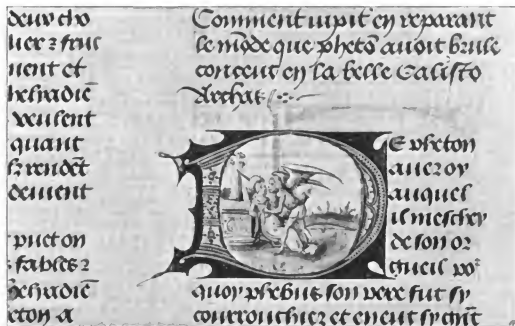 deux cho
uer ⁊ fruc
nent et
hesiadiē
veulent
quant
rendēt
deuient
puet on
fables ⁊
hesiadiē
eton a
Comment iupit en reparant
le mōde que phetō auoit brule
conceut en la belle Calisto
Archas
De pheton
auez oy
auquel
il meschey
de son or
gueil po²
quoy phebus son pere fut sy
courrouchiez et en eut sy gnt